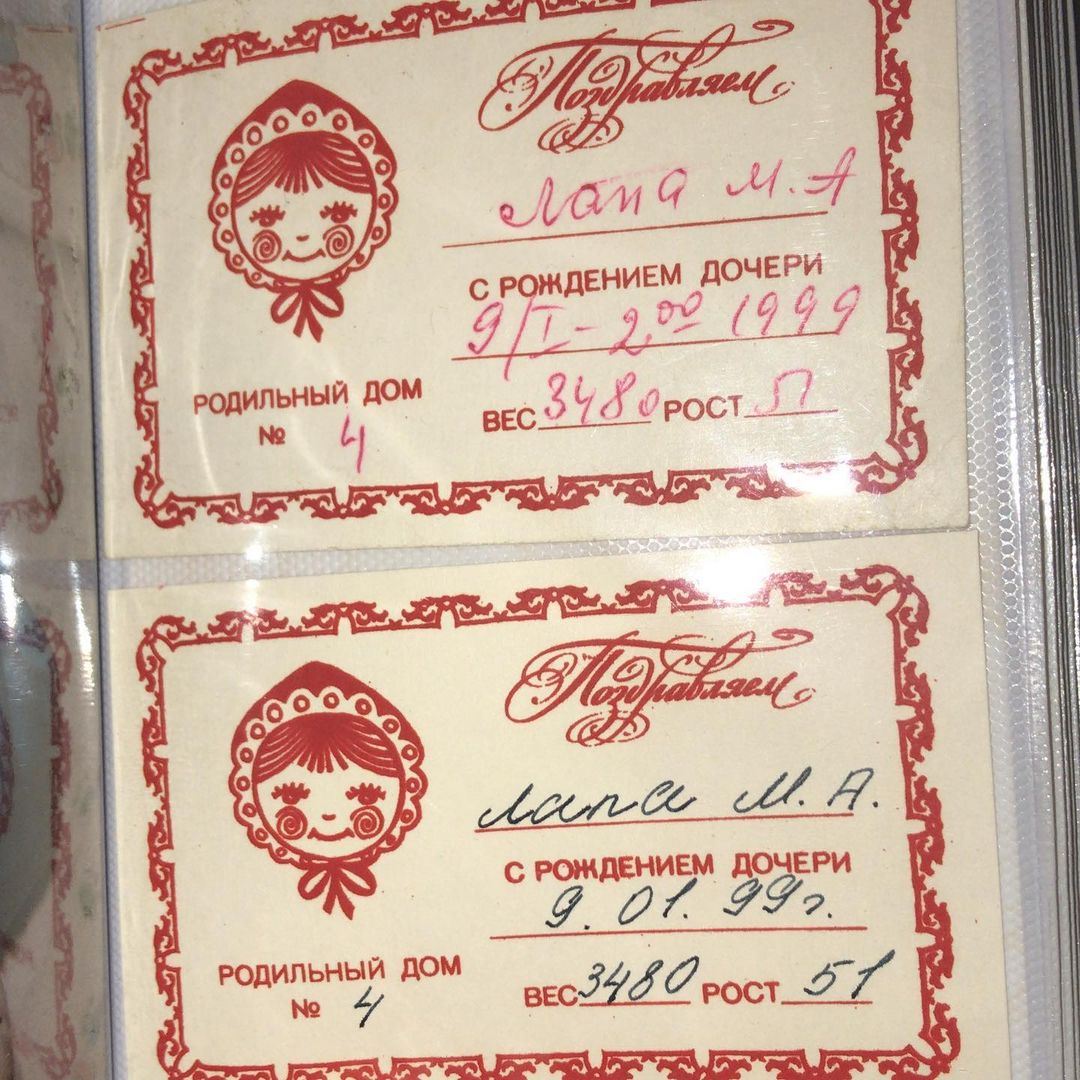 Поздравляем
Лапа М.А
С РОЖДЕНИЕМ ДОЧЕРИ
9/I - 2⁰⁰ 1999
РОДИЛЬНЫЙ ДОМ
№ 4
ВЕС 3480 РОСТ 51
Поздравляем
Лапа М.А.
С РОЖДЕНИЕМ ДОЧЕРИ
9.01.99г.
РОДИЛЬНЫЙ ДОМ
№ 4
ВЕС 3480 РОСТ 51